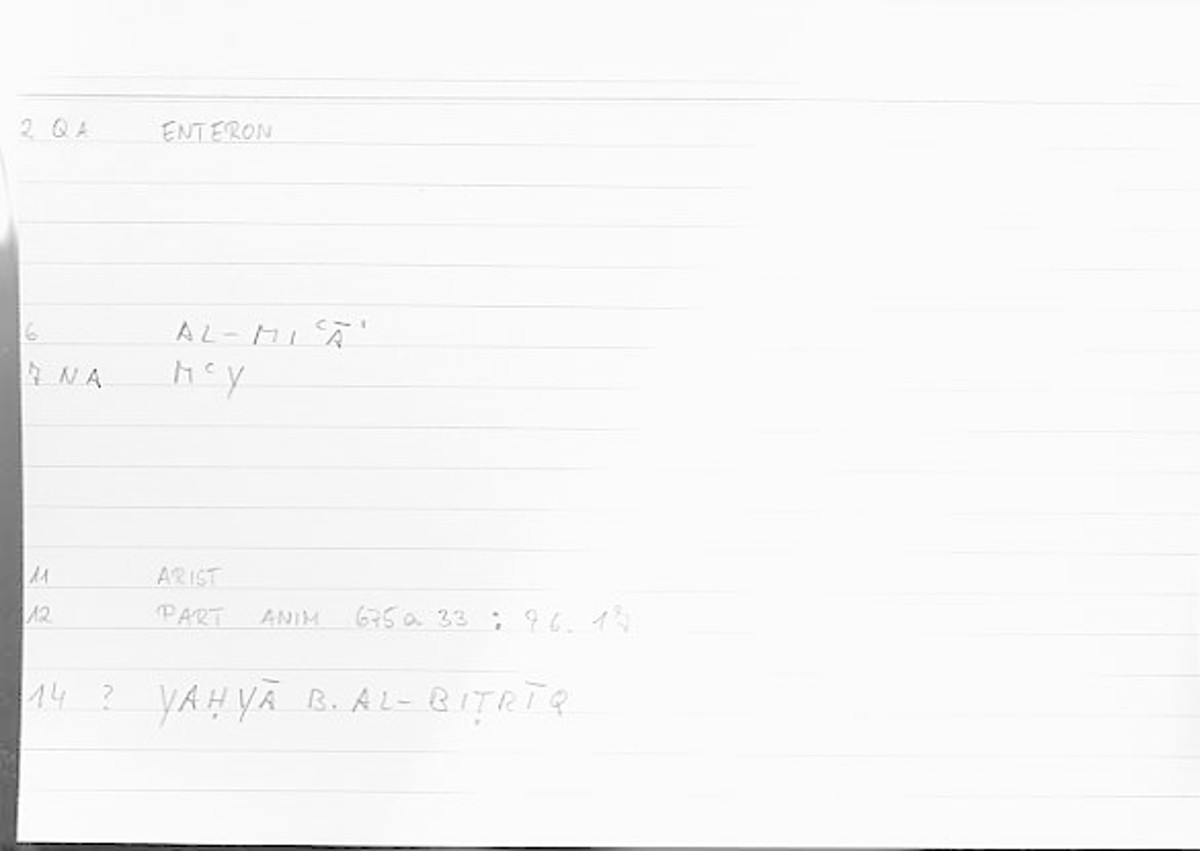 2 QA ENTERON
6 AL-MIʿĀʾ
7 NA MʿY
11 ARIST
12 PART ANIM 675a 33 : 96.
14 ? YAḤYĀ B. AL-BIṬRĪQ